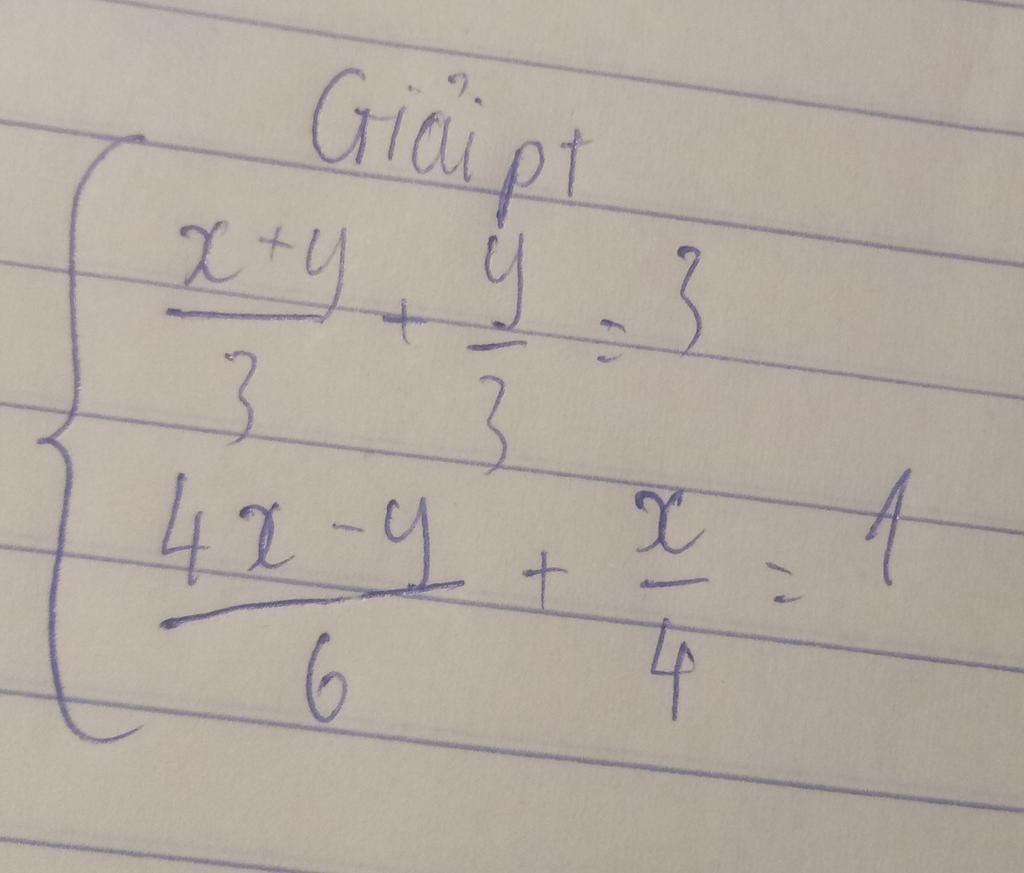 Giải pt
x+y/3 + y/3 = 3
4x-y/6 + x/4 = 1